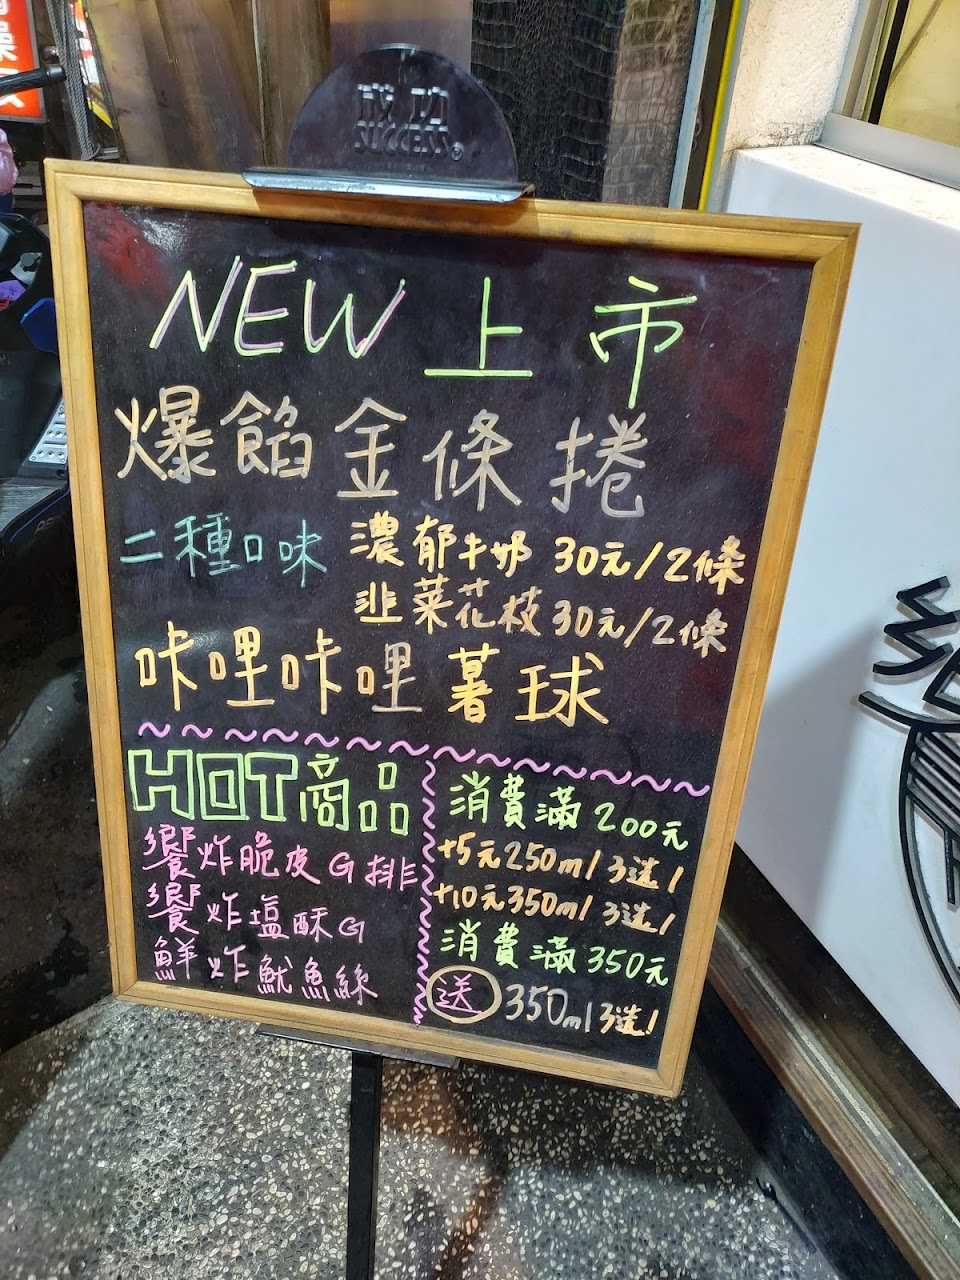 成功
SUCCESS®
NEW 上市
爆餡金條捲
二種口味 濃郁牛奶 30元/2條
韭菜花枝 30元/2條
咔哩咔哩薯球
HOT商品
饗炸脆皮G排
饗炸塩酥G
鮮炸魷魚絲
消費滿200元
+5元250ml 3選1
+10元350ml 3選1
消費滿350元
送 350ml 3選1